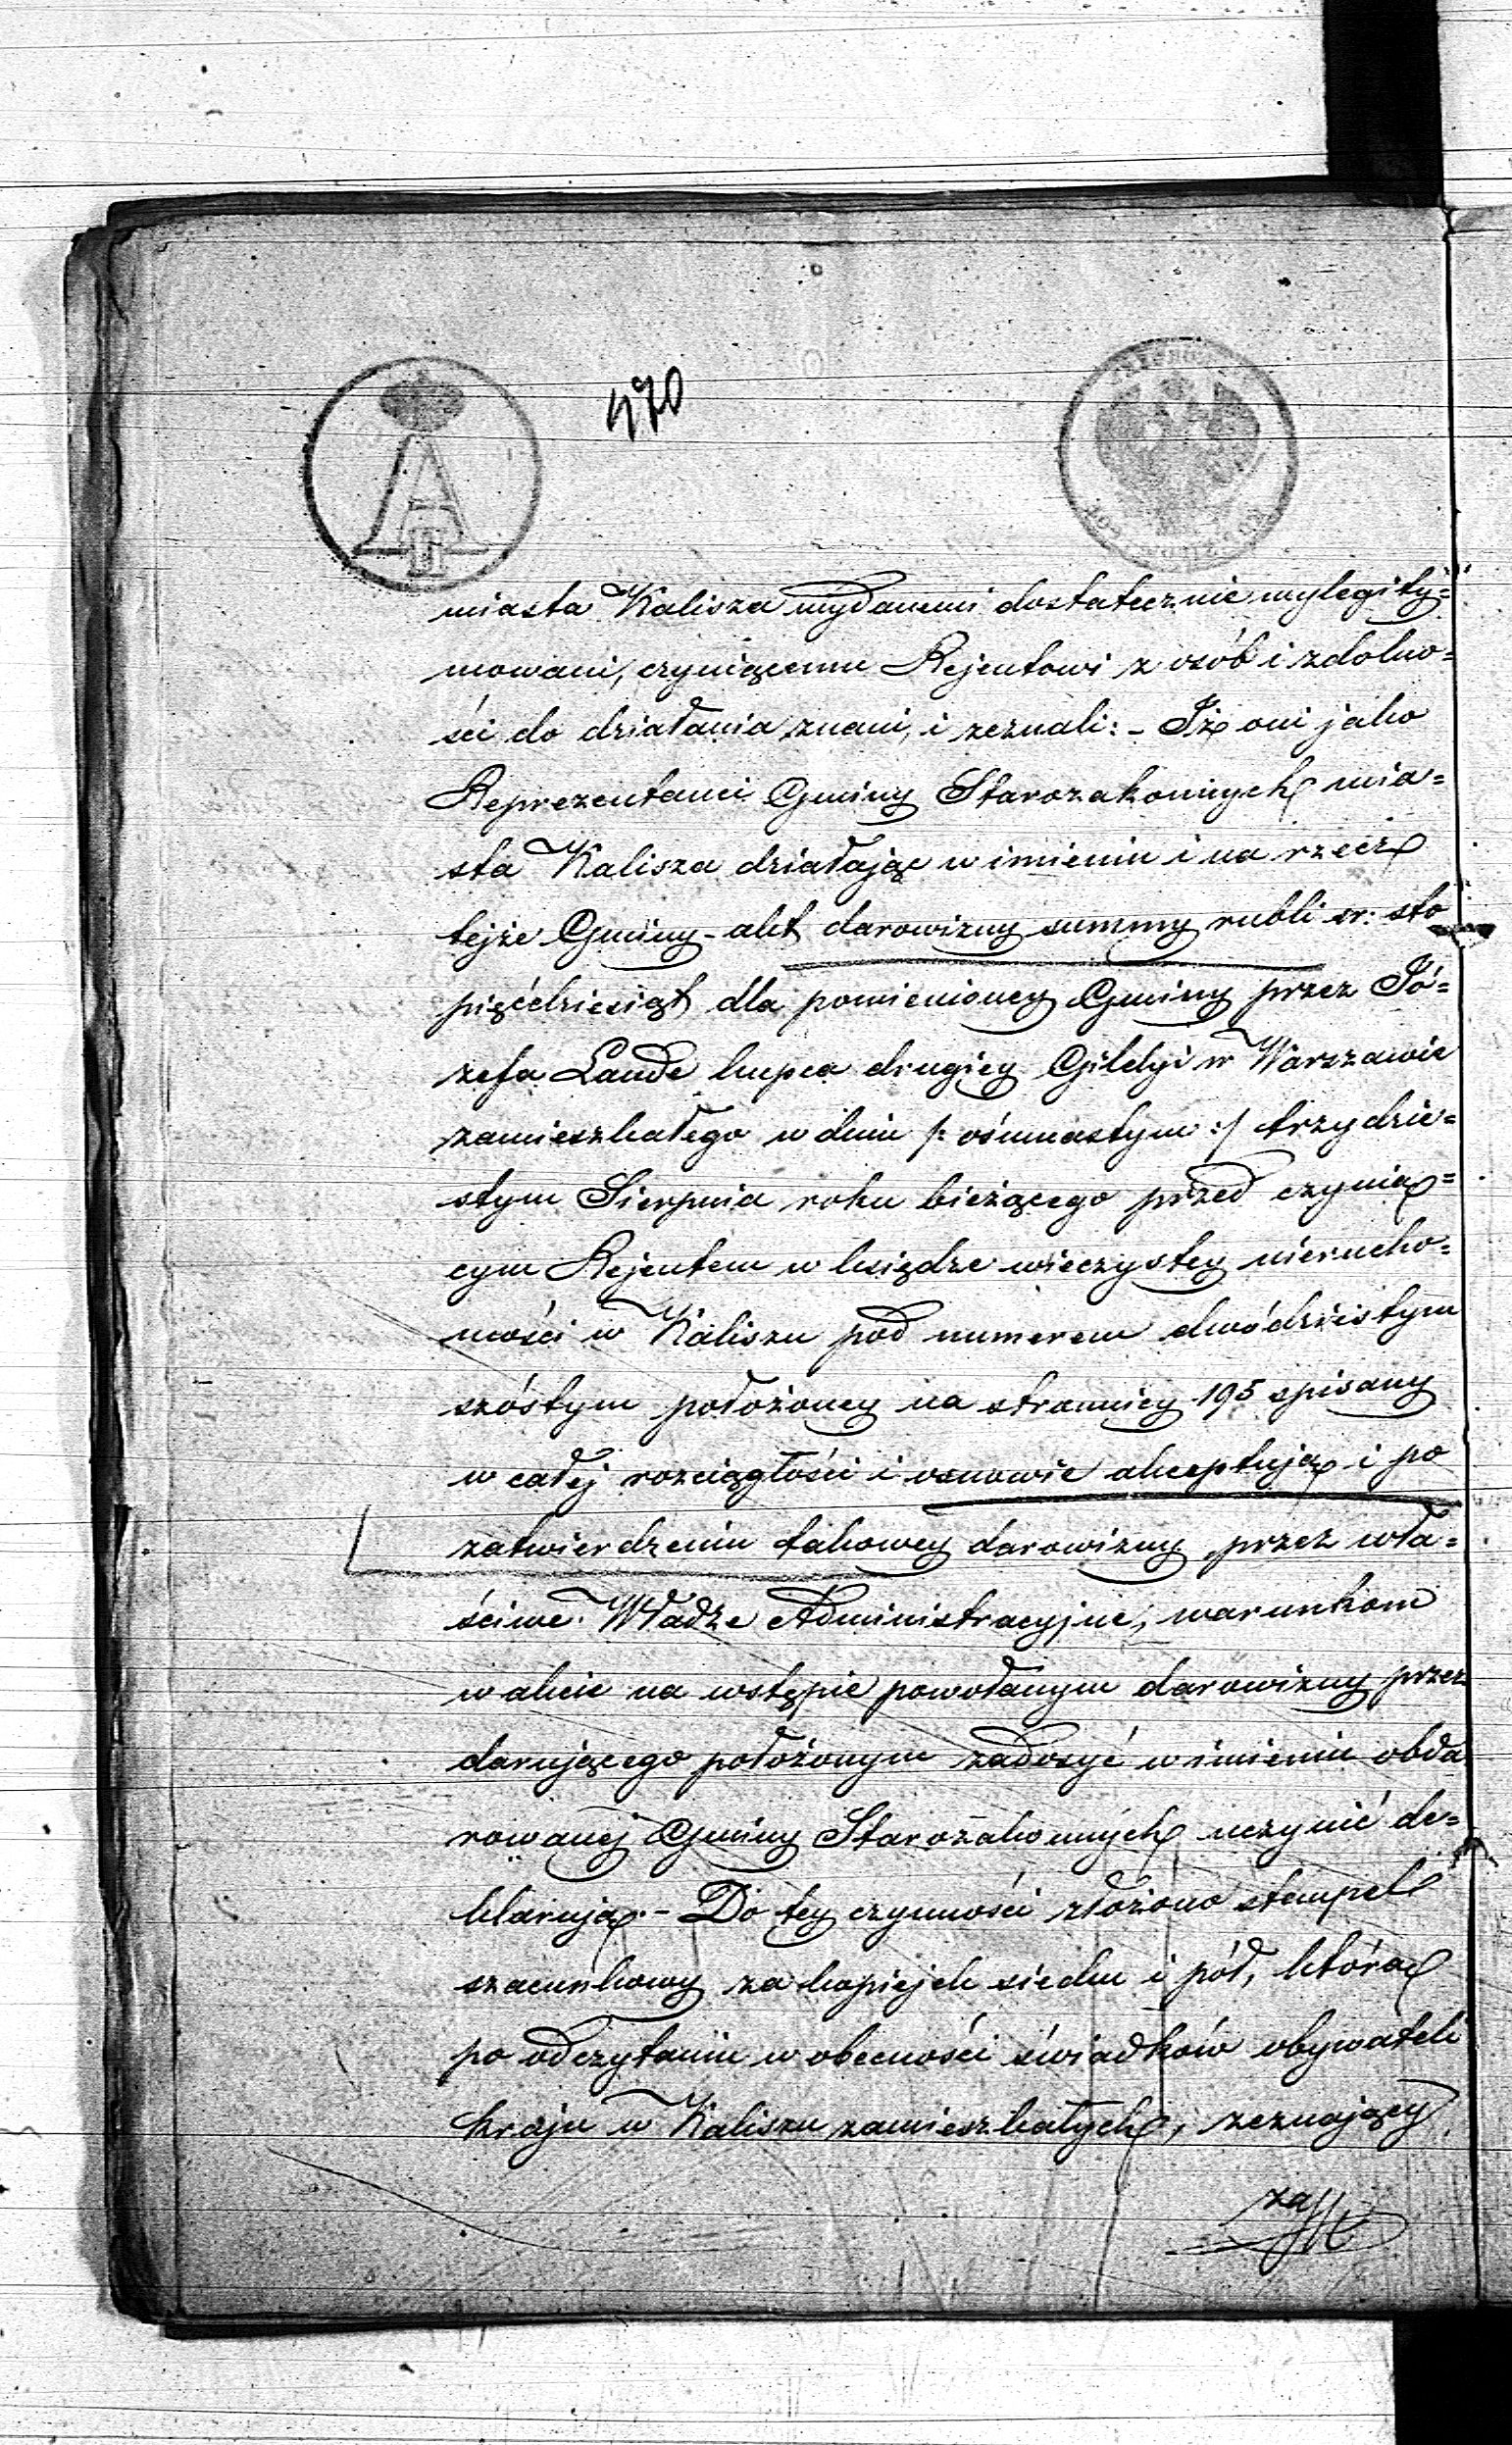 470
miasta Kalisza wydanemi dostatecznie wylegity=
mowani, czyniącemu Rejentowi z osób i zdolno=
ści do działania znani, i zeznali: - Iż oni jako
Reprezentanci Gminy Starozakonnych mia=
sta Kalisza działając w imieniu i na rzecz
tejże Gminy - akt darowizny summy rubli sr: sto
pięćdziesiąt dla pomienioney Gminy przez Jó=
zefa Laude kupca drugiey Gildyi w Warszawie
zamieszkałego w dniu /: ośmnastym :/ trzydzie=
stym Sierpnia roku bieżącego przed czynią=
cym Rejentem w księdze wieczystey nierucho=
mości w Kaliszu pod numerem dwódziestym
szóstym położoney na stronnicy 195 spisany
w całej rozciągłości i osnowie akceptują i po
zatwierdzeniu takowey darowizny przez wła=
ściwe Władze Administracyjne, warunkom
w akcie na wstępie powołanym darowizny przez
darującego położonym zadosyć w imieniu obda
rowanej Gminy Starozakonnych uczynić de=
klarują. - Do tey czynności złożono stempel
szacunkowy za kopiejek siedm i pół, którą
po odczytaniu w obecności świadków obywateli
kraju w Kaliszu zamieszkałych, zeznający
za